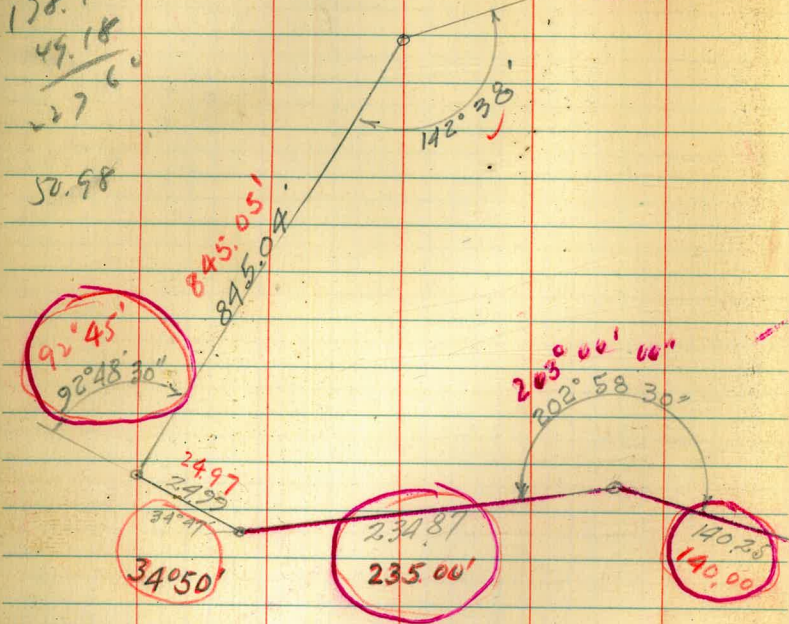 49.18
50.98
142° 38'
845.05'
845.04'
92° 45'
92° 48' 30"
203° 00' 00"
202° 58 30"
24.97
24.99
34° 47'
34° 50'
234.87
235.00'
140.25
140.00